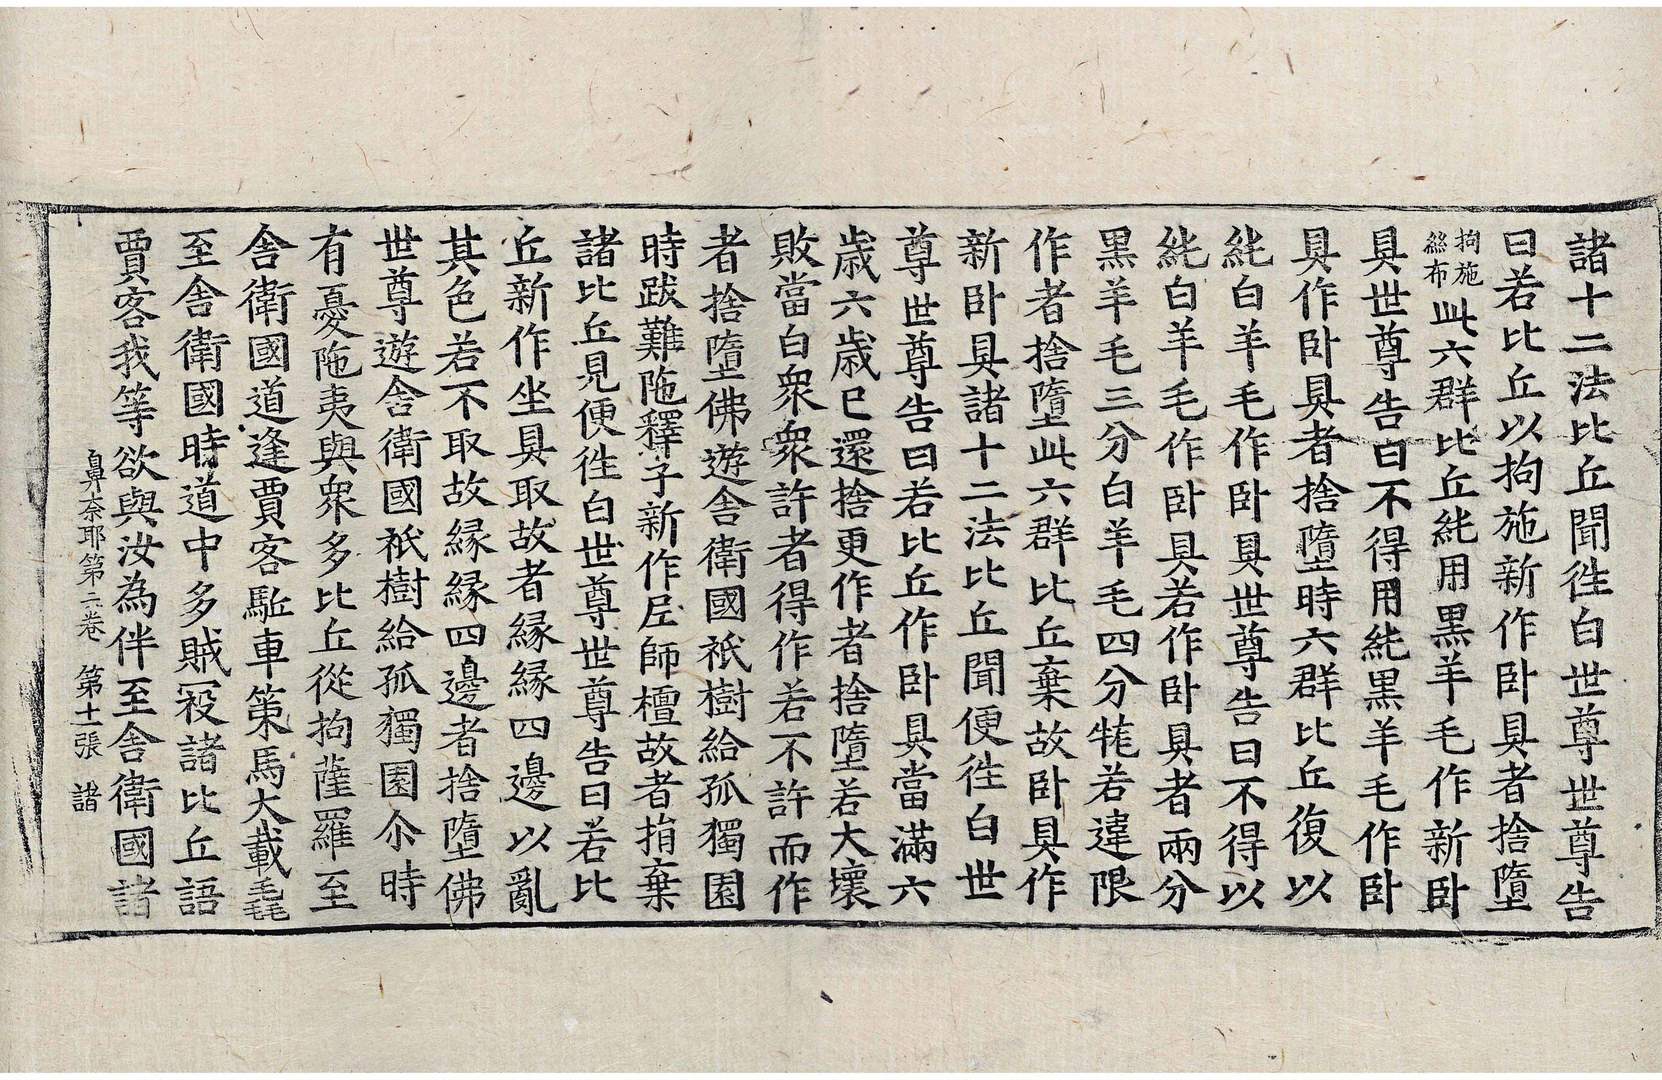 諸十二法比丘聞徃白世尊世尊告
曰若比丘以拘施新作卧具者捨墮
拘施絲布此六群比丘純用黒羊毛作新卧
具世尊告曰不得用純黒羊毛作卧
具作卧具者捨墮時六群比丘復以
純白羊毛作卧具世尊告曰不得以
純白羊毛作卧具若作卧具者兩分
黒羊毛三分白羊毛四分牻若違限
作者捨墮此六群比丘棄故卧具作
新卧具諸十二法比丘聞便徃白世
尊世尊告曰若比丘作卧具當滿六
歳六歳已還捨更作者捨墮若大壞
敗當白衆衆許者得作若不許而作
者捨墮佛遊舎衛國祇樹給孤獨園
時跋難陁釋子新作尼師檀故者捐棄
諸比丘見便徃白世尊世尊告曰若比
丘新作坐具取故者縁縁四邊以亂
其色若不取故縁縁四邊者捨墮佛
世尊遊舎衛國祇樹給孤獨園尒時
有憂陁夷與衆多比丘從拘薩羅至
舎衛國道逢賈客駈車策馬大載毛毳
至舎衛國時道中多賊㓂諸比丘語
賈客我等欲與汝為伴至舎衛國諸
鼻奈耶第二卷 第十一張 諸